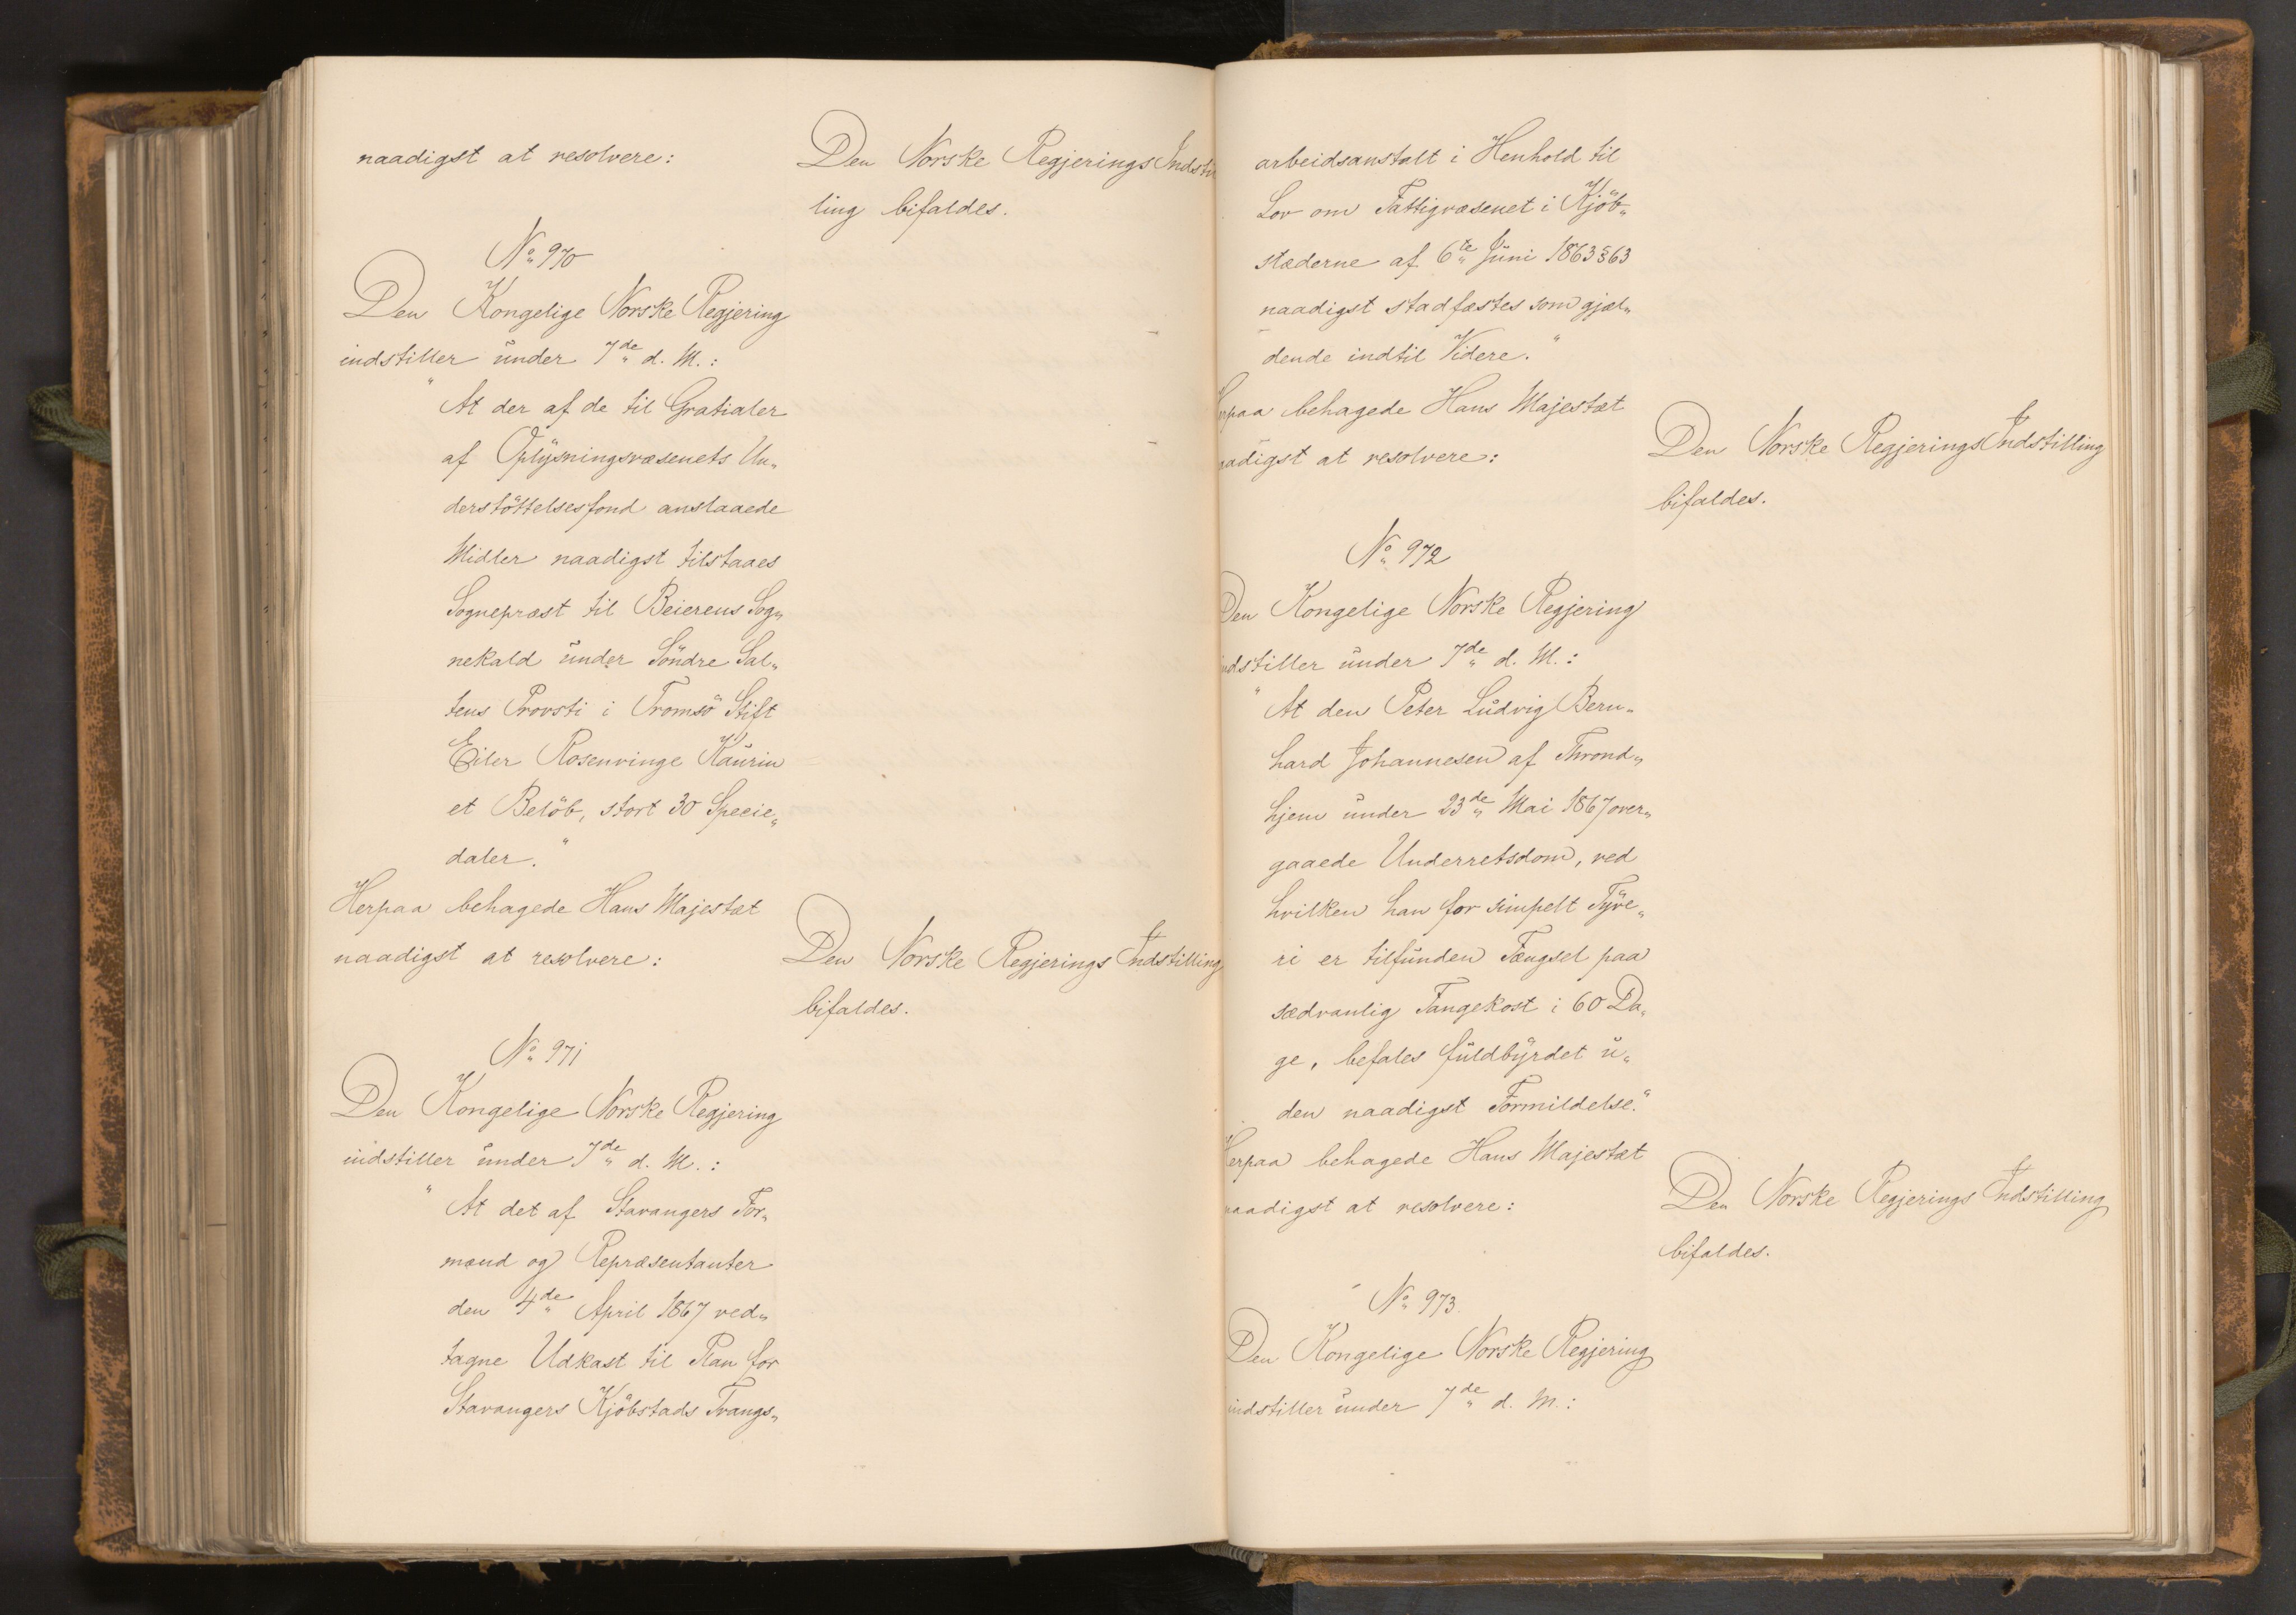 naadigst at resolvere:
Den Norske Regjerings Indstil
ling bifaldes.
No 970
Den Kongelige Norske Regjering
indstiller under 7de d. M.:
"At der af de til Gratialer
af Oplysningsvæsenets Un„
derstöttelsesfond anslaaede
Midler naadigst tilstaaes
Sognepræst til Beierens Sog„
nekald under Söndre Sal„
tens Provsti i Tromsö Stift
Eiler Rosenvinge Kaurin
et Belöb, stort 30 Specie„
daler."
Herpaa behagede Hans Majestæt
naadigst at resolvere:
Den Norske Regjerings Indstilling
bifaldes.
No 971
Den Kongelige Norske Regjering
indstiller under 7de d. M.:
"At det af Stavangers For„
mænd og Repræsentanter
den 4de April 1867 ved„
tagne Udkast til Plan for
Stavangers Kjöbstads Tvangs„
arbeidsanstalt i Henhold til
Lov om Fattigvæsenet i Kjöb„
stæderne af 6te Juni 1863 § 63
naadigst stadfæstes som gjæl„
dende indtil Videre."
Herpaa behagede Hans Majestæt
naadigst at resolvere:
Den Norske Regjerings Indstilling
bifaldes.
No 972
Den Kongelige Norske Regjering
indstiller under 7de d. M.:
"At den Peter Ludvig Bern„
hard Johannesen af Thrond„
hjem under 23de Mai 1867 over„
gaaede Underretsdom, ved
hvilken han for simpelt Tyve„
ri er tilfunden Fængsel paa
sædvanlig Fangekost i 60 Da„
ge, befales fuldbyrdet u„
den naadigst Formildelse."
Herpaa behagede Hans Majestæt
naadigst at resolvere:
Den Norske Regjerings Indstilling
bifaldes.
No 973.
Den Kongelige Norske Regjering
indstiller under 7de d. M.: